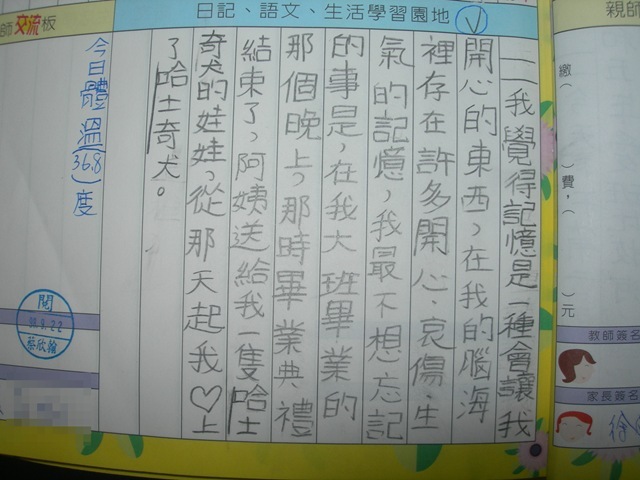 日記、語文、生活學習園地
一我覺得記憶是一種會讓我
開心的東西，在我的腦海
裡存在許多開心、哀傷、生
氣的記憶，我最不想忘記
的事是，在我大班畢業的
那個晚上，那時畢業典禮
結束了，阿姨送給我一隻哈士
奇犬的娃娃，從那天起我♡上
了哈士奇犬。
師交流板
今日體溫(36.8)度
閱
蔡欣翰
親師
繳(
)費，(
)元
教師簽名
家長簽名
徐